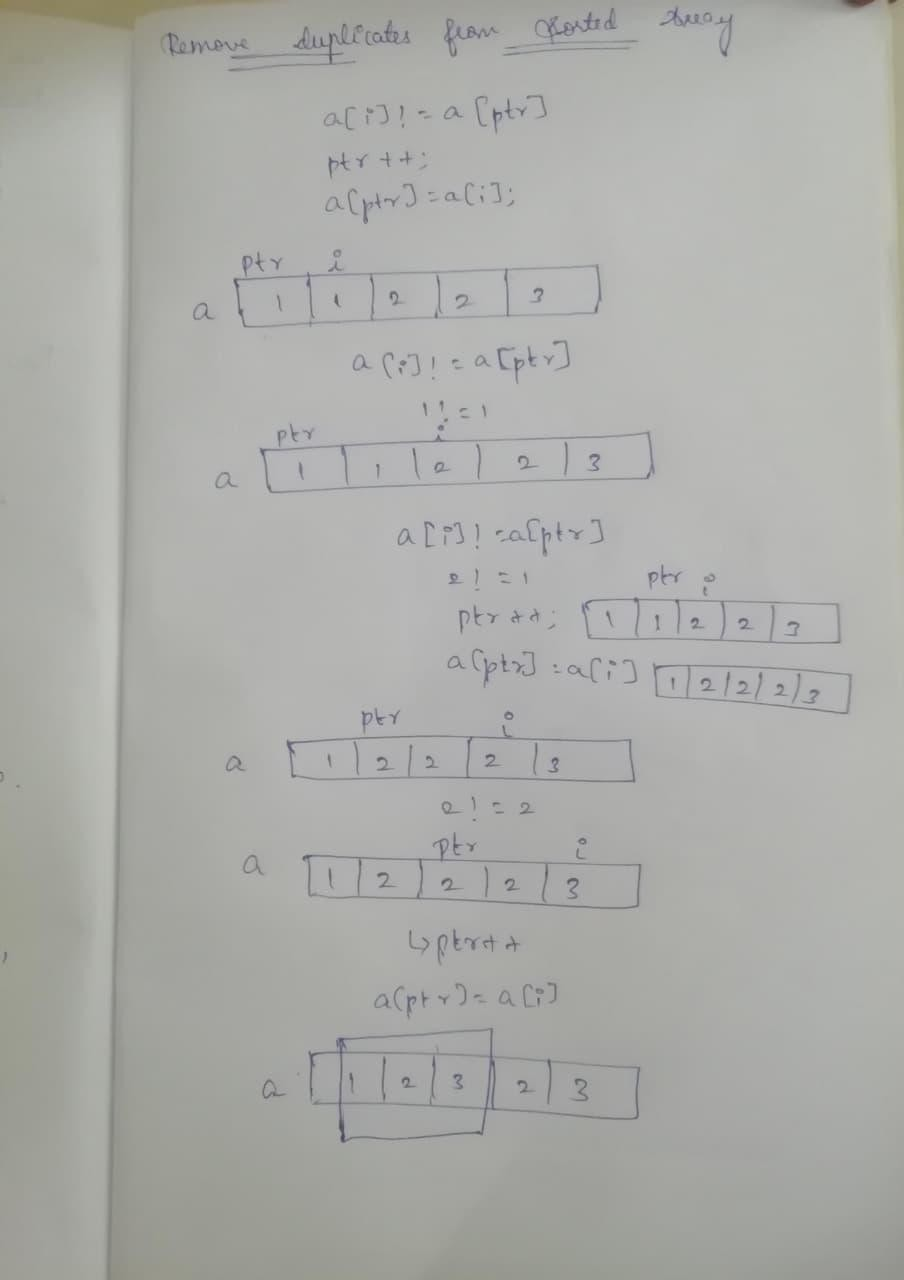 Remove duplicates from sorted Array
a[i]! = a[ptr]
ptr ++;
a[ptr] = a[i];
ptr i
a 1 1 2 2 3
a[i]! = a[ptr]
1! = 1
ptr i
a 1 1 2 2 3
a[i]! = a[ptr]
2! = 1
ptr i
ptr ++; 1 1 2 2 3
a[ptr] = a[i] 1 2 2 2 3
ptr i
a 1 2 2 2 3
2! = 2
ptr i
a 1 2 2 2 3
↳ptr++
a(ptr) = a[i]
a 1 2 3 2 3